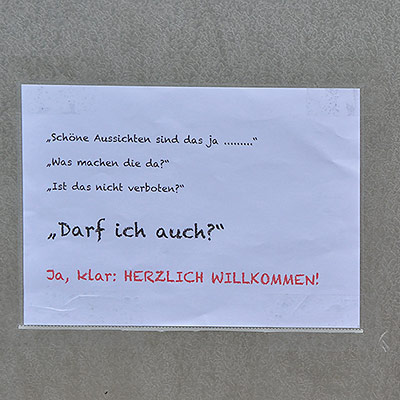 „Schöne Aussichten sind das ja .........“
„Was machen die da?“
„Ist das nicht verboten?“
„Darf ich auch?“
Ja, klar: HERZLICH WILLKOMMEN!